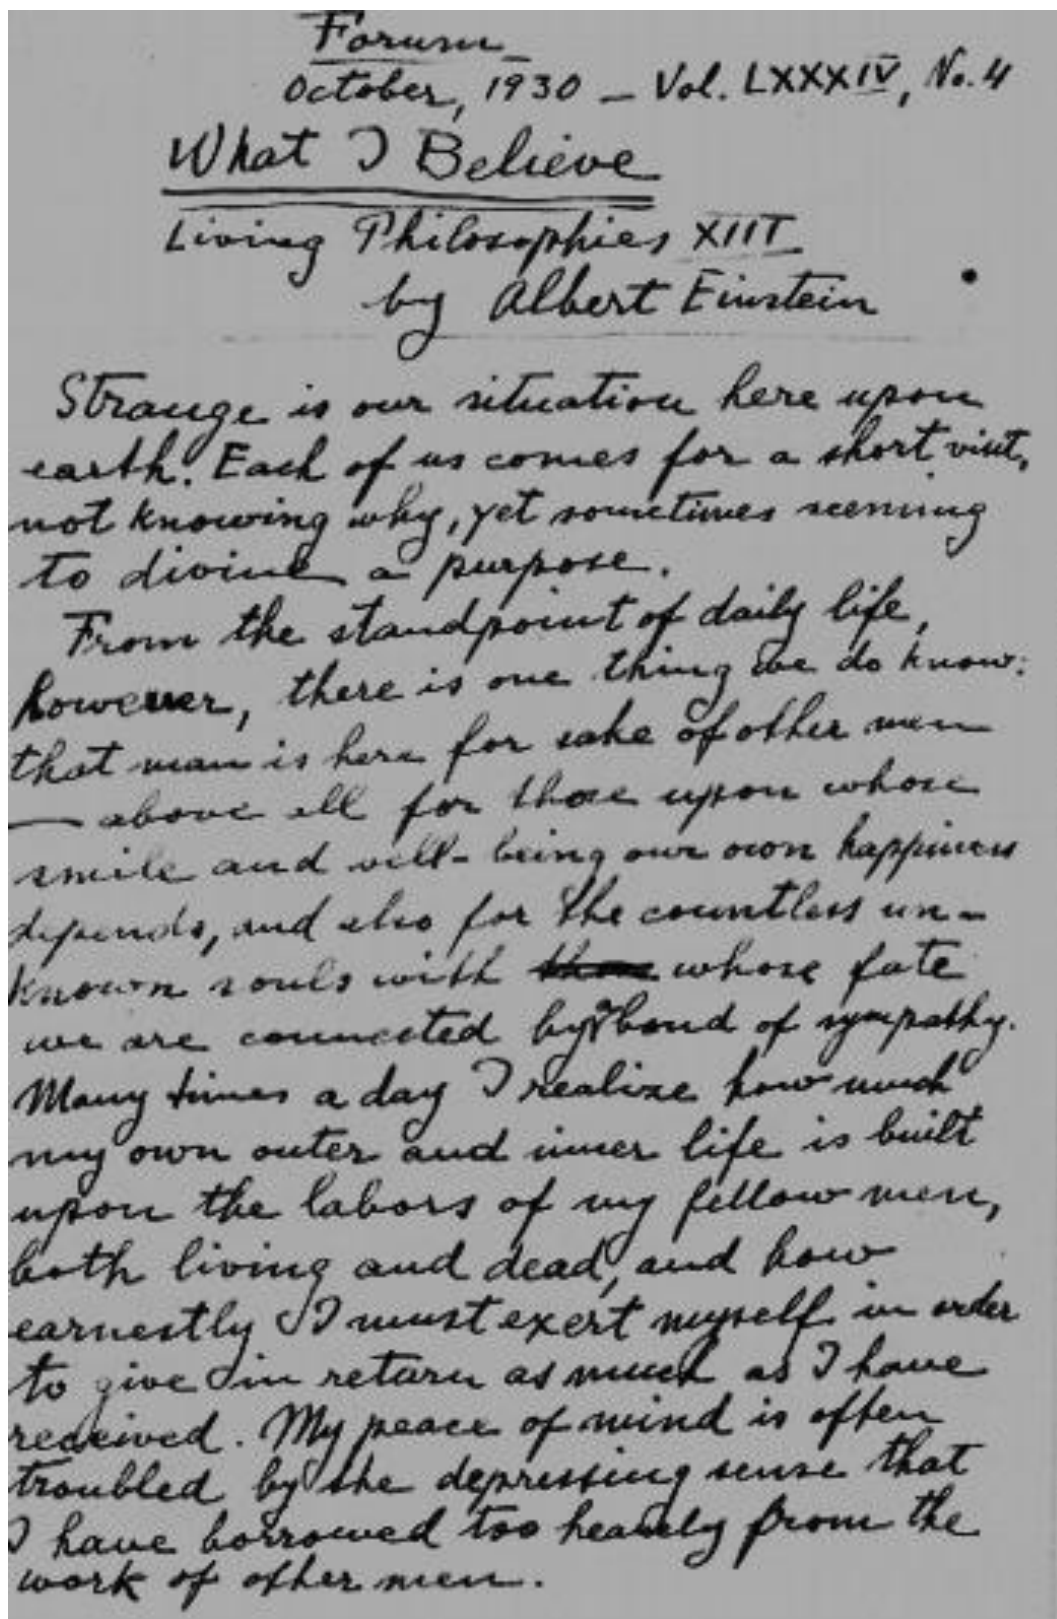 Forum
October, 1930 – Vol. LXXXIV, No. 4
What I Believe
Living Philosophies XIII
by Albert Einstein
Strange is our situation here upon
earth. Each of us comes for a short visit,
not knowing why, yet sometimes seeming
to divine a purpose.
From the standpoint of daily life,
however, there is one thing we do know:
that man is here for sake of other men
— above all for those upon whose
smile and well-being our own happiness
depends, and also for the countless un-
known souls with whose fate
we are connected by a bond of sympathy.
Many times a day I realize how much
my own outer and inner life is built
upon the labors of my fellow men,
both living and dead, and how
earnestly I must exert myself in order
to give in return as much as I have
received. My peace of mind is often
troubled by the depressing sense that
I have borrowed too heavily from the
work of other men.